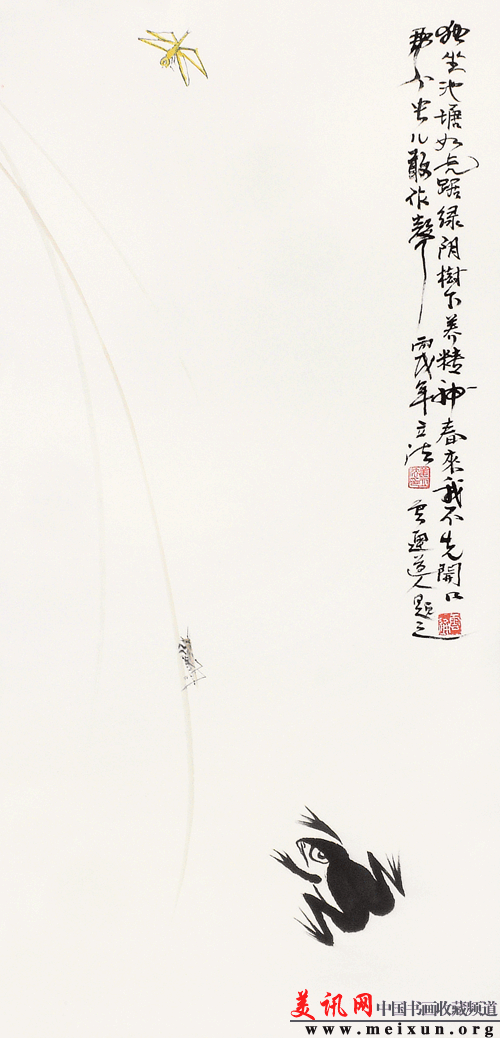 独坐池塘如虎踞绿阴樹下养精神春來我不先開口
那个虫儿敢作聲 丙戌年立法 道人題之
美讯网中国书画收藏频道
www.meixun.org